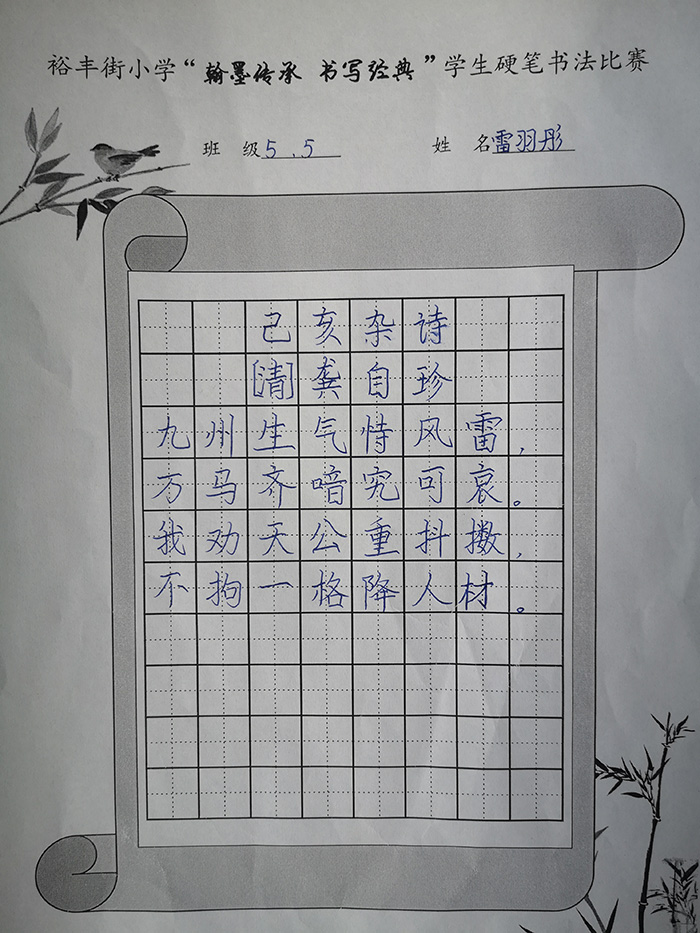 裕丰街小学“翰墨传承 书写经典”学生硬笔书法比赛
班 级 5.5 姓 名 雷羽彤
己亥杂诗
[清]龚自珍
九州生气恃风雷，
万马齐喑究可哀。
我劝天公重抖擞，
不拘一格降人材。